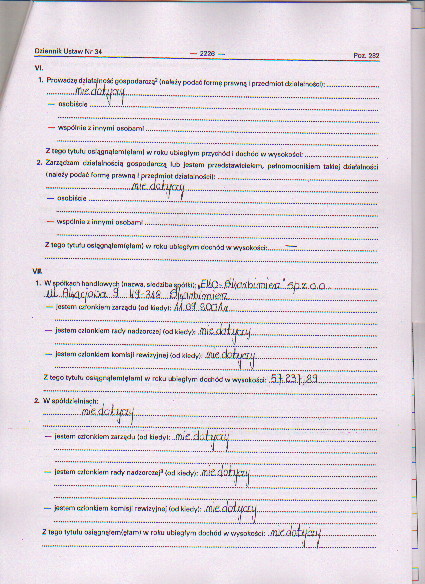 Dziennik Ustaw Nr 34 — 2226 — Poz. 282
VI.
1. Prowadzę działalność gospodarczą² (należy podać formę prawną i przedmiot działalności):
nie dotyczy
— osobiście
— wspólnie z innymi osobami
Z tego tytułu osiągnąłem(ęłam) w roku ubiegłym przychód i dochód w wysokości:
2. Zarządzam działalnością gospodarczą lub jestem przedstawicielem, pełnomocnikiem takiej działalności
(należy podać formę prawną i przedmiot działalności):
nie dotyczy
— osobiście
— wspólnie z innymi osobami
Z tego tytułu osiągnąłem(ęłam) w roku ubiegłym dochód w wysokości: —
VII.
1. W spółkach handlowych (nazwa, siedziba spółki): „EKO-Skarbimierz" sp. z o.o.
ul. Akacjowa 9 49-318 Skarbimierz
— jestem członkiem zarządu (od kiedy):
— jestem członkiem rady nadzorczej (od kiedy): nie dotyczy
— jestem członkiem komisji rewizyjnej (od kiedy): nie dotyczy
Z tego tytułu osiągnąłem(ęłam) w roku ubiegłym dochód w wysokości: 57.231,89
2. W spółdzielniach:
nie dotyczy
— jestem członkiem zarządu (od kiedy): nie dotyczy
— jestem członkiem rady nadzorczej³ (od kiedy): nie dotyczy
— jestem członkiem komisji rewizyjnej (od kiedy): nie dotyczy
Z tego tytułu osiągnąłem(ęłam) w roku ubiegłym dochód w wysokości: nie dotyczy